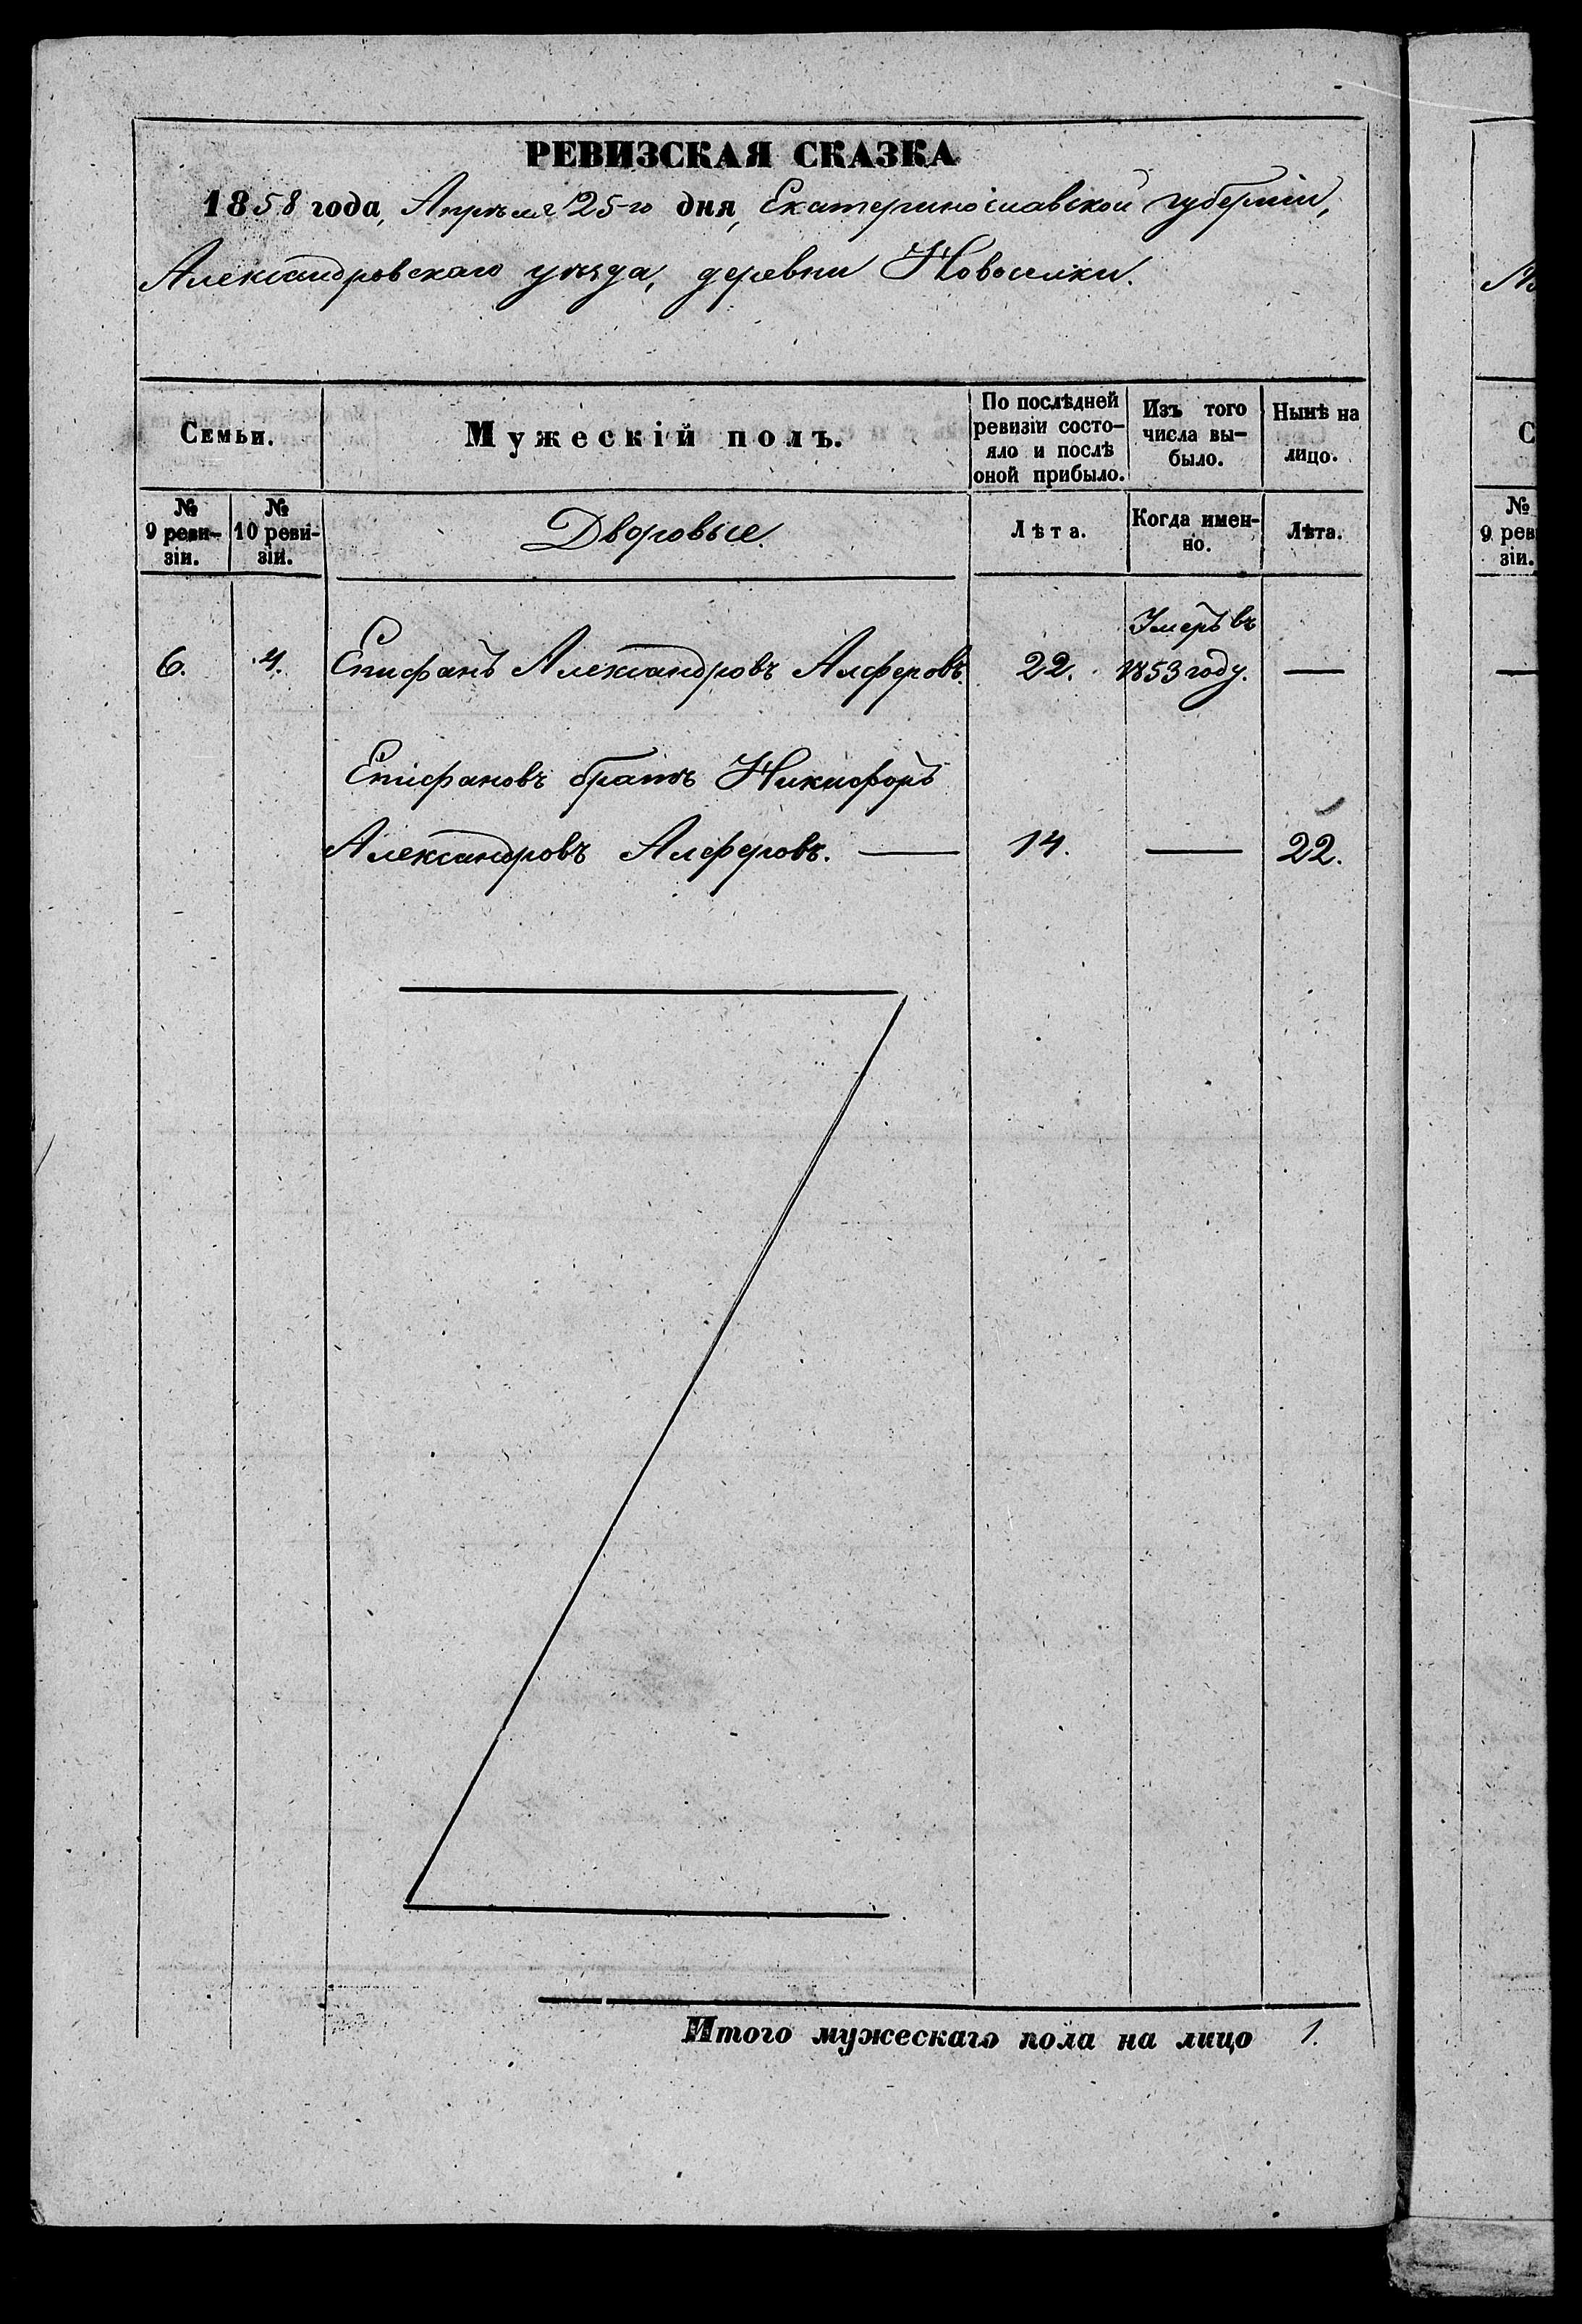 РЕВИЗСКАЯ СКАЗКА
1858 года, Апрѣля 25-го дня, Екатеринославской губерніи,
Александровскаго уѣзда, деревни Новоселки.
Семьи.
Мужескій полъ.
По послѣдней
ревизіи состо-
яло и послѣ
оной прибыло.
Изъ того
числа вы-
было.
Нынѣ на
лицо.
№
9 реви-
зіи.
№
10 реви-
зіи.
Дворовые.
Лѣта.
Когда имен-
но.
Лѣта.
6. 4. Епифанъ Александровъ Алферовъ. 22. Умеръ въ
1853 году. —
Епифановъ братъ Никифоръ
Александровъ Алферовъ. — 14. — 22.
Итого мужескаго пола на лицо 1.
№
9 рев
зіи.